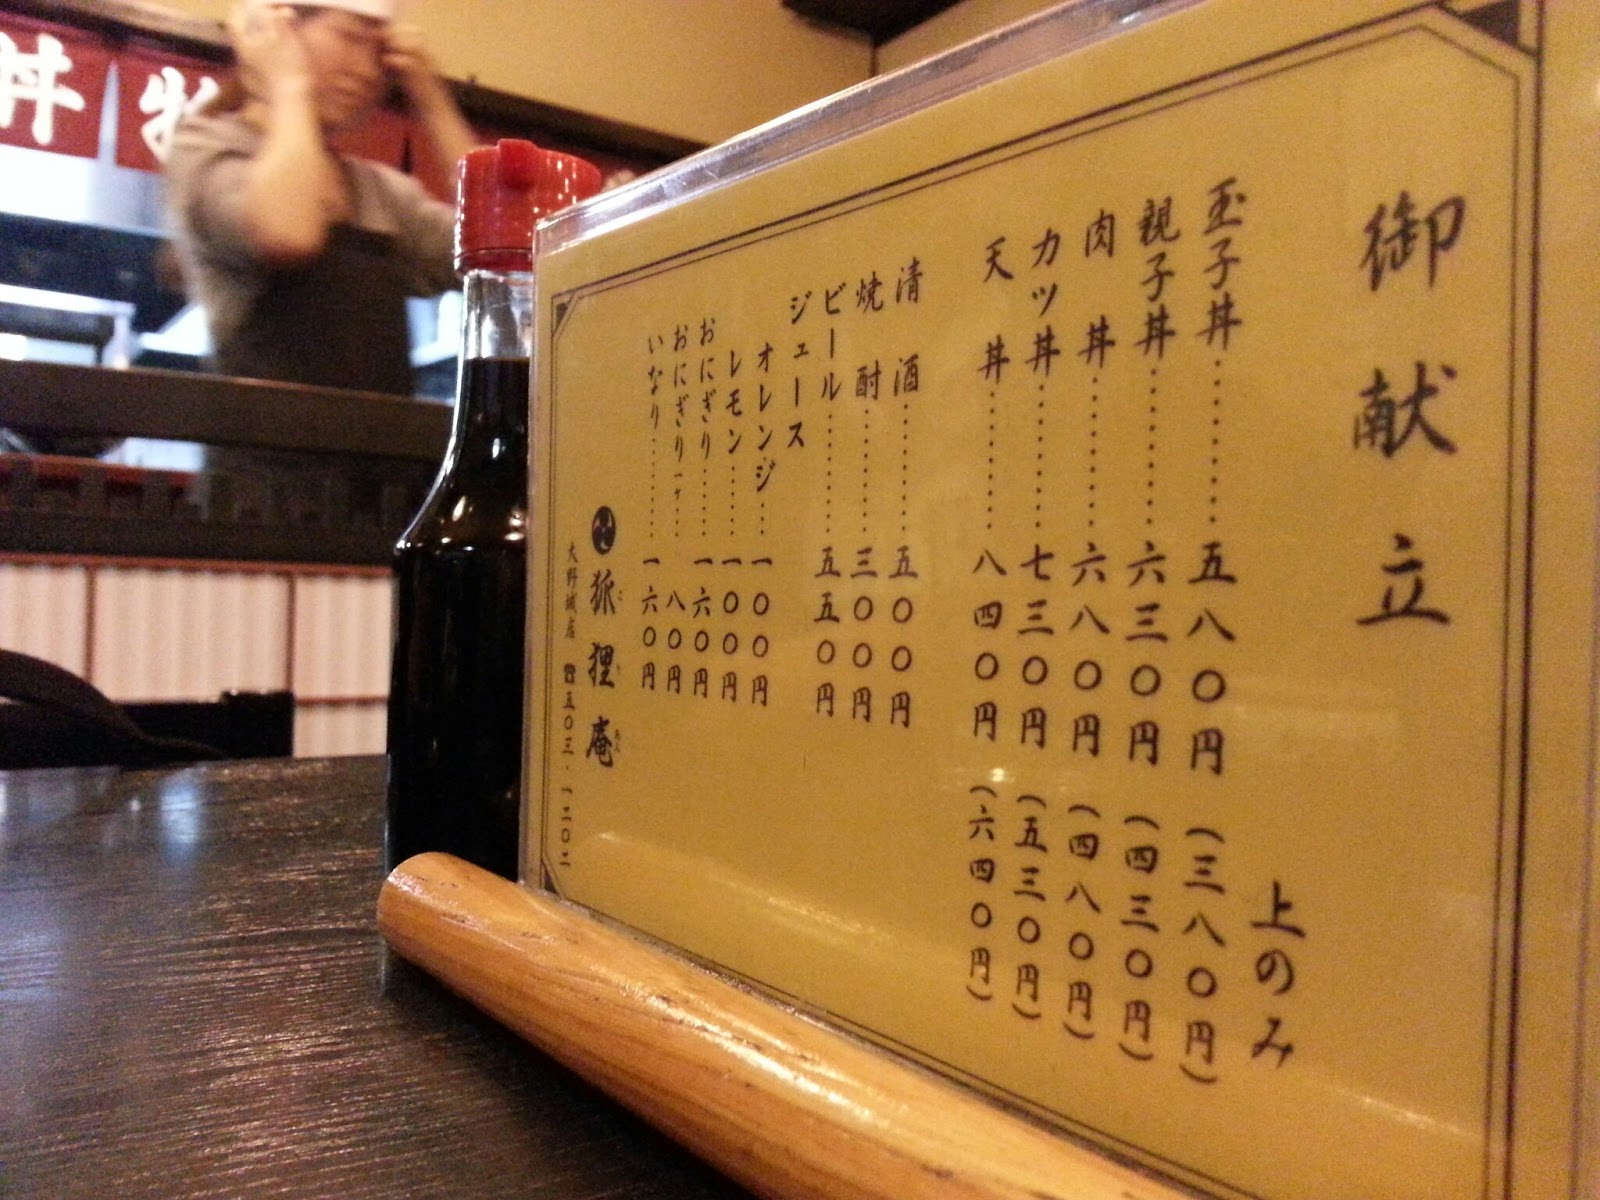 御献立
上のみ
玉子丼…………五八〇円(三八〇円)
親子丼…………六三〇円(四三〇円)
肉丼…………六八〇円(四八〇円)
カツ丼…………七三〇円(五三〇円)
天丼…………八四〇円(六四〇円)
清酒…………五〇〇円
焼酎…………三〇〇円
ビール…………五五〇円
ジュース
オレンジ…一〇〇円
レモン……一〇〇円
おにぎり……一六〇円
おにぎり一ヶ…八〇円
いなり………一六〇円
狐狸庵
こりあん
大野城店 ☎五〇三・一二〇二
丼物